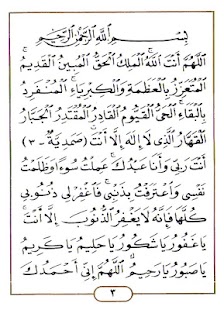 بِسْمِ اللَّهِ الرَّحْمَنِ الرَّحِيمِ
اَللَّهُمَّ أَنْتَ اللَّهُ الْمَلِكُ الْحَقُّ الْمُبِينُ الْقَدِيمُ
الْمُتَعَزِّزُ بِالْعَظَمَةِ وَالْكِبْرِيَاءِ الْمُنْفَرِدُ
بِالْبَقَاءِ الْحَيُّ الْقَيُّومُ الْقَادِرُ الْمُقْتَدِرُ الْجَبَّارُ
الْقَهَّارُ الَّذِي لَا إِلَهَ إِلَّا أَنْتَ (صَمَدِيَّة - ٣)
أَنْتَ رَبِّي وَأَنَا عَبْدُكَ عَمِلْتُ سُوءًا وَظَلَمْتُ
نَفْسِي وَاعْتَرَفْتُ بِذَنْبِي فَاغْفِرْ لِي ذُنُوبِي
كُلَّهَا فَإِنَّهُ لَا يَغْفِرُ الذُّنُوبَ إِلَّا أَنْتَ
يَا غَفُورُ يَا شَكُورُ يَا حَلِيمُ يَا كَرِيمُ
يَا صَبُورُ يَا رَحِيمُ اَللَّهُمَّ إِنِّي أَحْمَدُكَ
٣